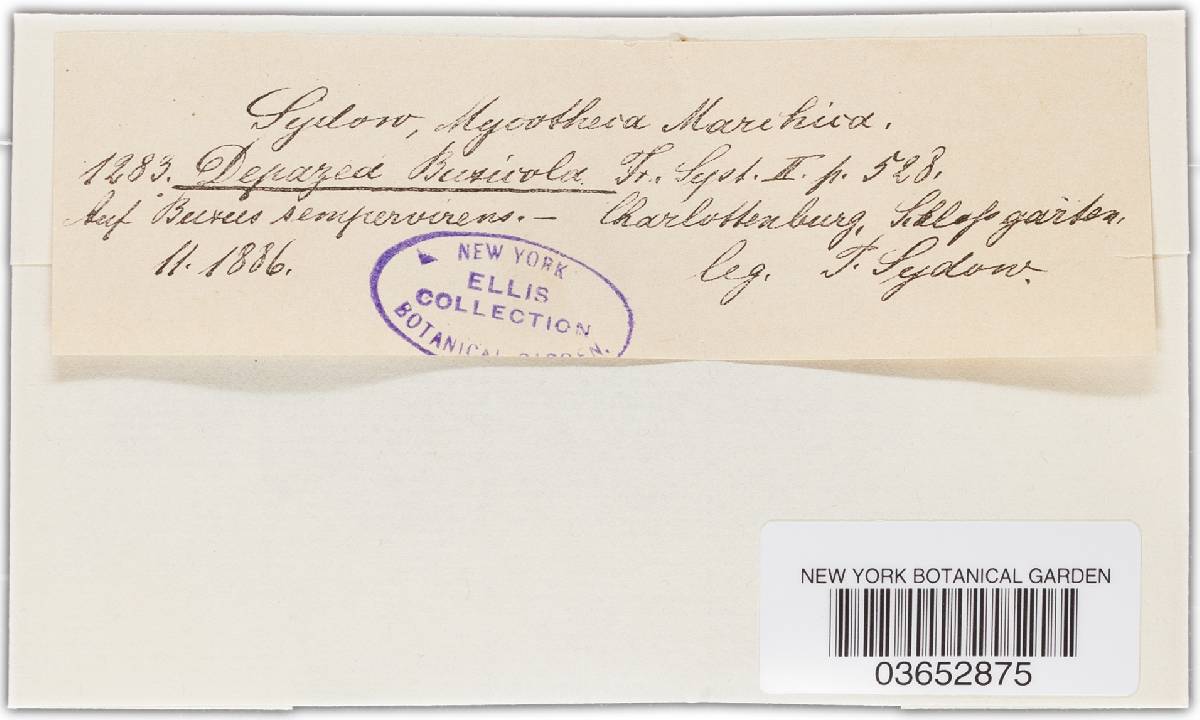 Sydow, Mycotheca Marchica.
1283. Depazea Buxicola Fr. Syst. II. p. 528.
Auf Buxus sempervirens. – Charlottenburg, Schloßgarten.
11. 1886. leg. P. Sydow.
NEW YORK
ELLIS
COLLECTION
BOTANICAL GARDEN.
NEW YORK BOTANICAL GARDEN
03652875